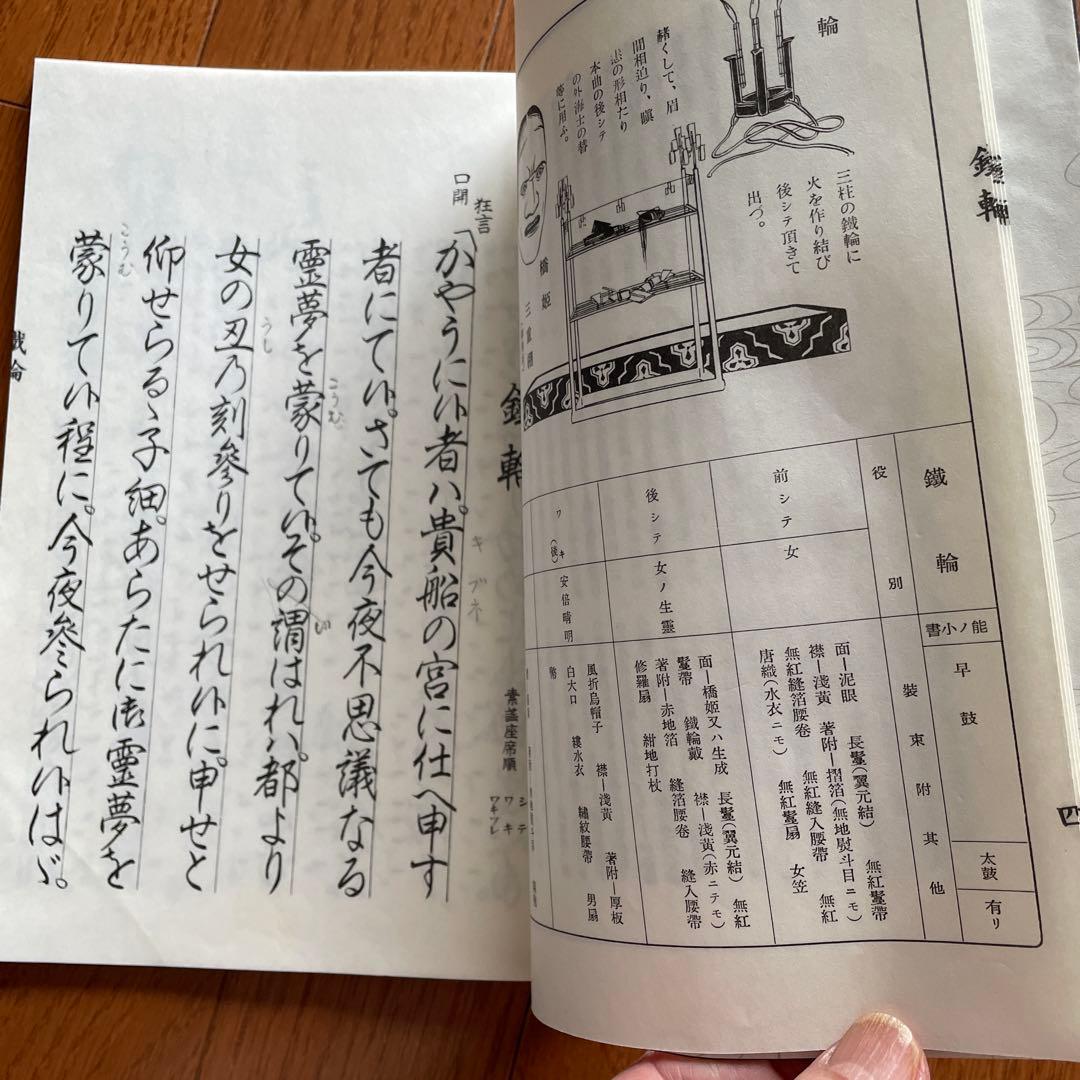 鐵輪
四
輪
三柱の鐵輪に
火を作り結び
後シテ頂きて
出づ。
赭くして、眉
間相迫り、瞋
恚の形相たり
本曲の後シテ
の外海士の替
等に用ふ。
橋姫
三重
鐵輪
能ノ小書
早鼓
太鼓
有リ
役別
裝束附其他
前シテ
女
面―泥眼 長鬘(翼元結) 無紅鬘帶
襟―淺黃 著附―摺箔(無地熨斗目ニモ)
無紅縫箔腰卷 無紅縫入腰帶 無紅
唐織(水衣ニモ) 無紅鬘扇 女笠
後シテ
女ノ生靈
面―橋姫又ハ生成 長鬘(翼元結) 無紅
鬘帶 鐵輪戴 襟―淺黃(赤ニテモ)
著附―赤地箔 縫箔腰卷 縫入腰帶
修羅扇 紺地打杖
ワキ(後)
安倍晴明
風折烏帽子 襟―淺黃 著附―厚板
白大口 縷水衣 繡紋腰帶 男扇
幣
鐵輪
素謠座席順
シテ
ワキ
ワキツレ
狂言
口開
「かやうにい者ハ。貴船の宮に仕へ申す
キブネ
者にてい。さても今夜不思議なる
靈夢を蒙りてい。その謂はれハ。都より
こうむ
い
女の丑乃刻參りをせられいに。申せと
うし
仰せらるゝ子細。あらたに御靈夢を
蒙りてい程に。今夜參られいはゞ。
こうむ